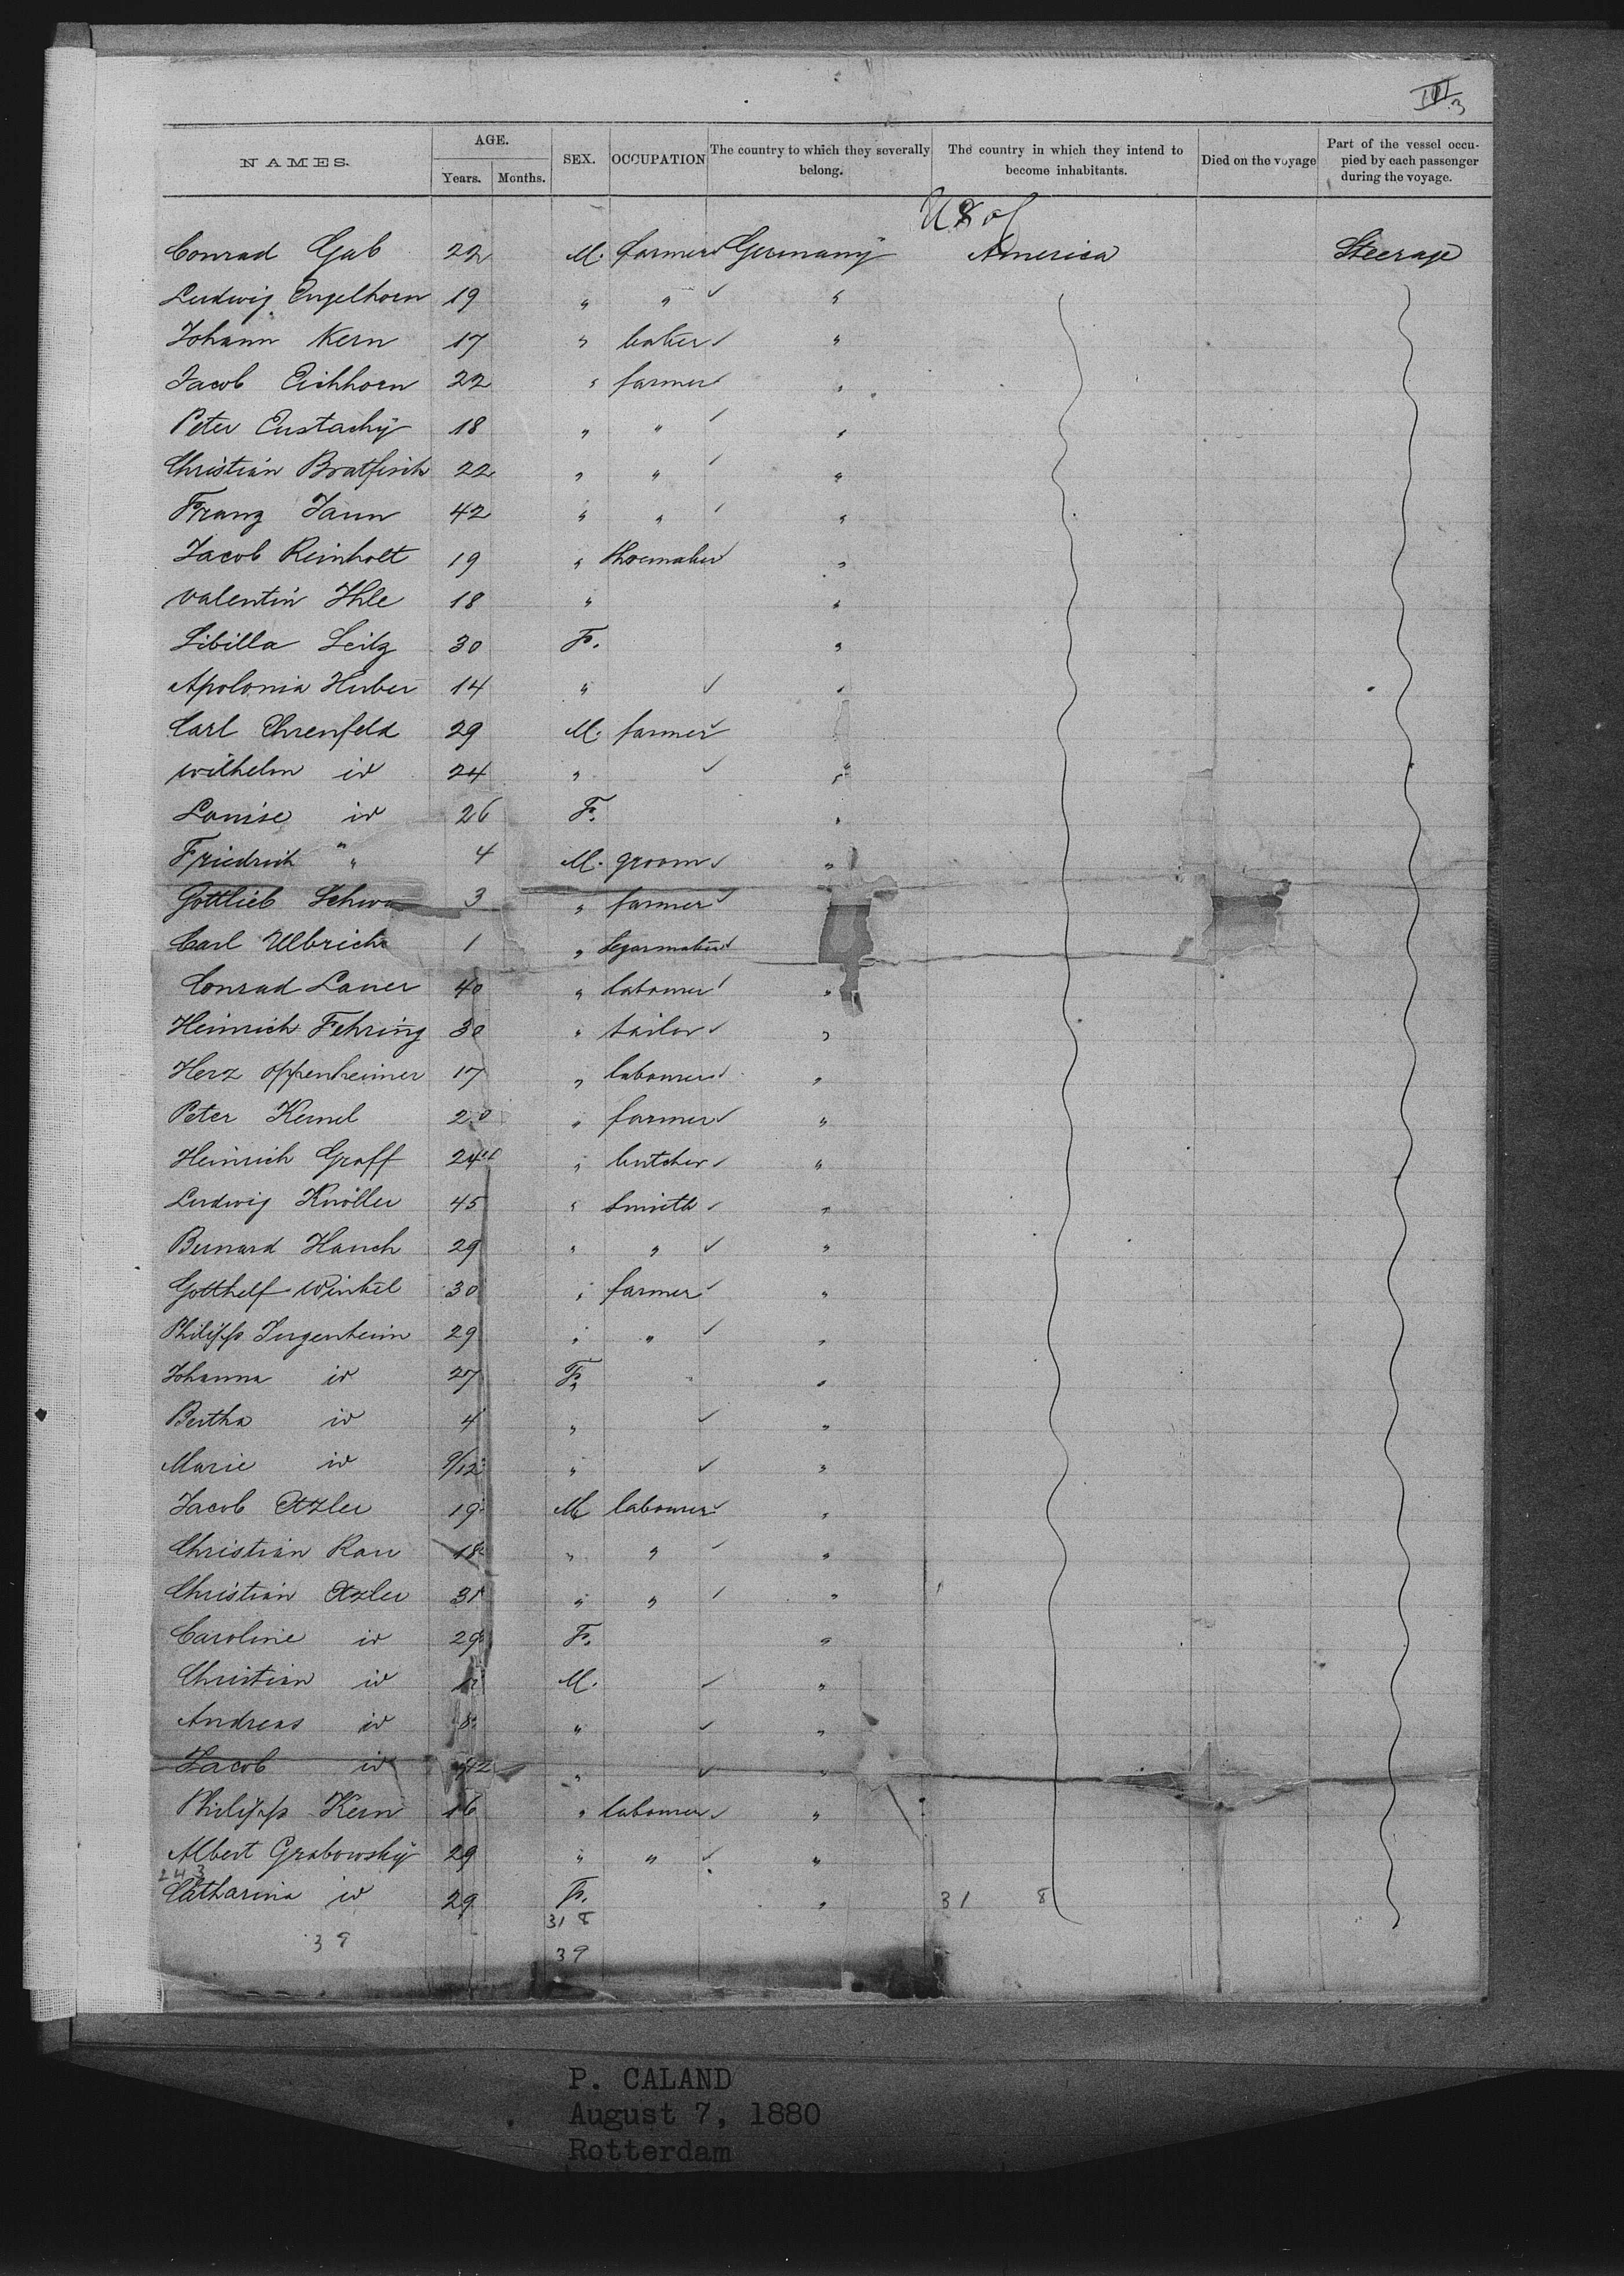 III 3
NAMES. AGE. Years. Months. SEX. OCCUPATION The country to which they severally belong. The country in which they intend to become inhabitants. Died on the voyage Part of the vessel occupied by each passenger during the voyage.
U S of
Conrad Gab 22 M. farmer Germany America Steerage
Ludwig Engelhorn 19 " " "
Johann Kern 17 " baker "
Jacob Eichhorn 22 " farmer "
Peter Eustachÿ 18 " " "
Christian Bratfisch 22 " " "
Franz Jann 42 " " "
Jacob Reinholt 19 " shoemaker "
Valentin Ihle 18 " "
Sibilla Seitz 30 F. "
Apolonia Huber 14 " "
Carl Ehrenfeld 29 M. farmer
Wilhelm id 24 " "
Louise id 26 F. "
Friedrich " 4 M. groom "
Gottlieb 3 " farmer
Carl Ulbrich 1 " Segarmaker
Conrad Lauer 40 " labourer "
Heinrich Fehring 30 " tailor "
Herz Oppenheimer 17 " labourer "
Peter Kemel 20 " farmer "
Heinrich Graff 24 " butcher "
Ludwig Knöller 45 " Smith "
Bernard Hauch 29 " " "
Gotthelf Winkel 30 " farmer "
Philipp Jugenheim 29 " " "
Johanna id 27 F. "
Bertha id 4 " "
Marie id 9/12 " "
Jacob Etzler 19 M labourer "
Christian Rau 18 " " "
Christian Etzler 31 " " "
Caroline id 29 F. "
Christian id M. "
Andreas id 8 " "
Jacob id " "
Philipp Kern 16 " labourer "
Albert Grabowskÿ 29 " " "
243
Catharina id 29 F. " 31 8
31 8
39 39
P. CALAND
August 7, 1880
Rotterdam